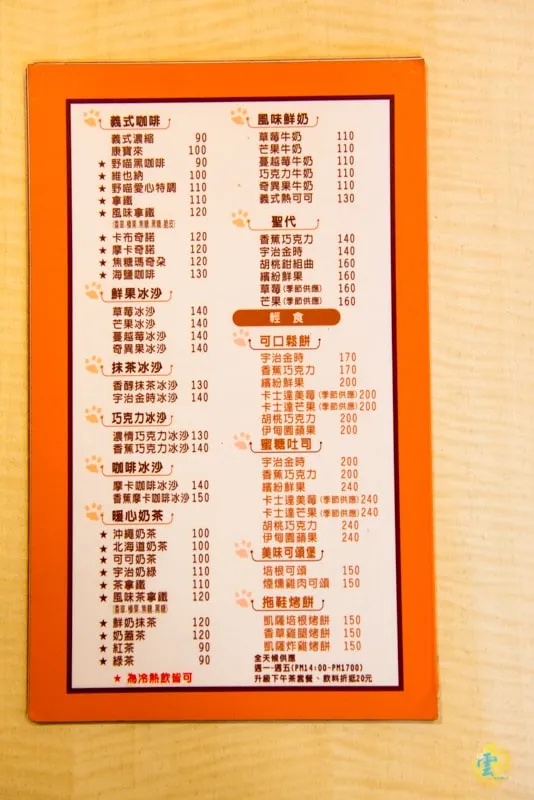 義式咖啡
義式濃縮 90
康寶來 100
★ 野喵黑咖啡 90
★ 維也納 100
★ 野喵愛心特調 110
★ 拿鐵 110
★ 風味拿鐵 120
★ 卡布奇諾 120
★ 摩卡奇諾 120
★ 焦糖瑪奇朵 120
★ 海鹽咖啡 130
鮮果冰沙
草莓冰沙 140
芒果冰沙 140
蔓越莓冰沙 140
奇異果冰沙 140
抹茶冰沙
香醇抹茶冰沙 130
宇治金時冰沙 140
巧克力冰沙
濃情巧克力冰沙 130
香蕉巧克力冰沙 140
咖啡冰沙
摩卡咖啡冰沙 140
香蕉摩卡咖啡冰沙 150
暖心奶茶
★ 沖繩奶茶 100
★ 北海道奶茶 100
★ 可可奶茶 100
★ 宇治奶綠 110
★ 茶拿鐵 110
★ 風味茶拿鐵 120
★ 鮮奶抹茶 120
★ 奶蓋茶 120
★ 紅茶 90
★ 綠茶 90
★ 為冷熱飲皆可
風味鮮奶
草莓牛奶 110
芒果牛奶 110
蔓越莓牛奶 110
巧克力牛奶 110
奇異果牛奶 110
義式熱可可 130
聖代
香蕉巧克力 140
宇治金時 140
胡桃鉗組曲 160
繽紛鮮果 160
草莓(季節供應) 160
芒果(季節供應) 160
輕食
可口鬆餅
宇治金時 170
香蕉巧克力 170
繽紛鮮果 200
卡士達美莓(季節供應) 200
卡士達芒果(季節供應) 200
胡桃巧克力 200
伊甸園蘋果 200
蜜糖吐司
宇治金時 200
香蕉巧克力 200
繽紛鮮果 240
卡士達美莓(季節供應) 240
卡士達芒果(季節供應) 240
胡桃巧克力 240
伊甸園蘋果 240
美味可頌堡
培根可頌 150
煙燻雞肉可頌 150
拖鞋烤餅
凱薩培根烤餅 150
香草雞腿烤餅 150
凱薩炸雞烤餅 150
全天候供應
週一-週五(PM14:00-PM1700)
升級下午茶套餐、飲料折底20元
雲